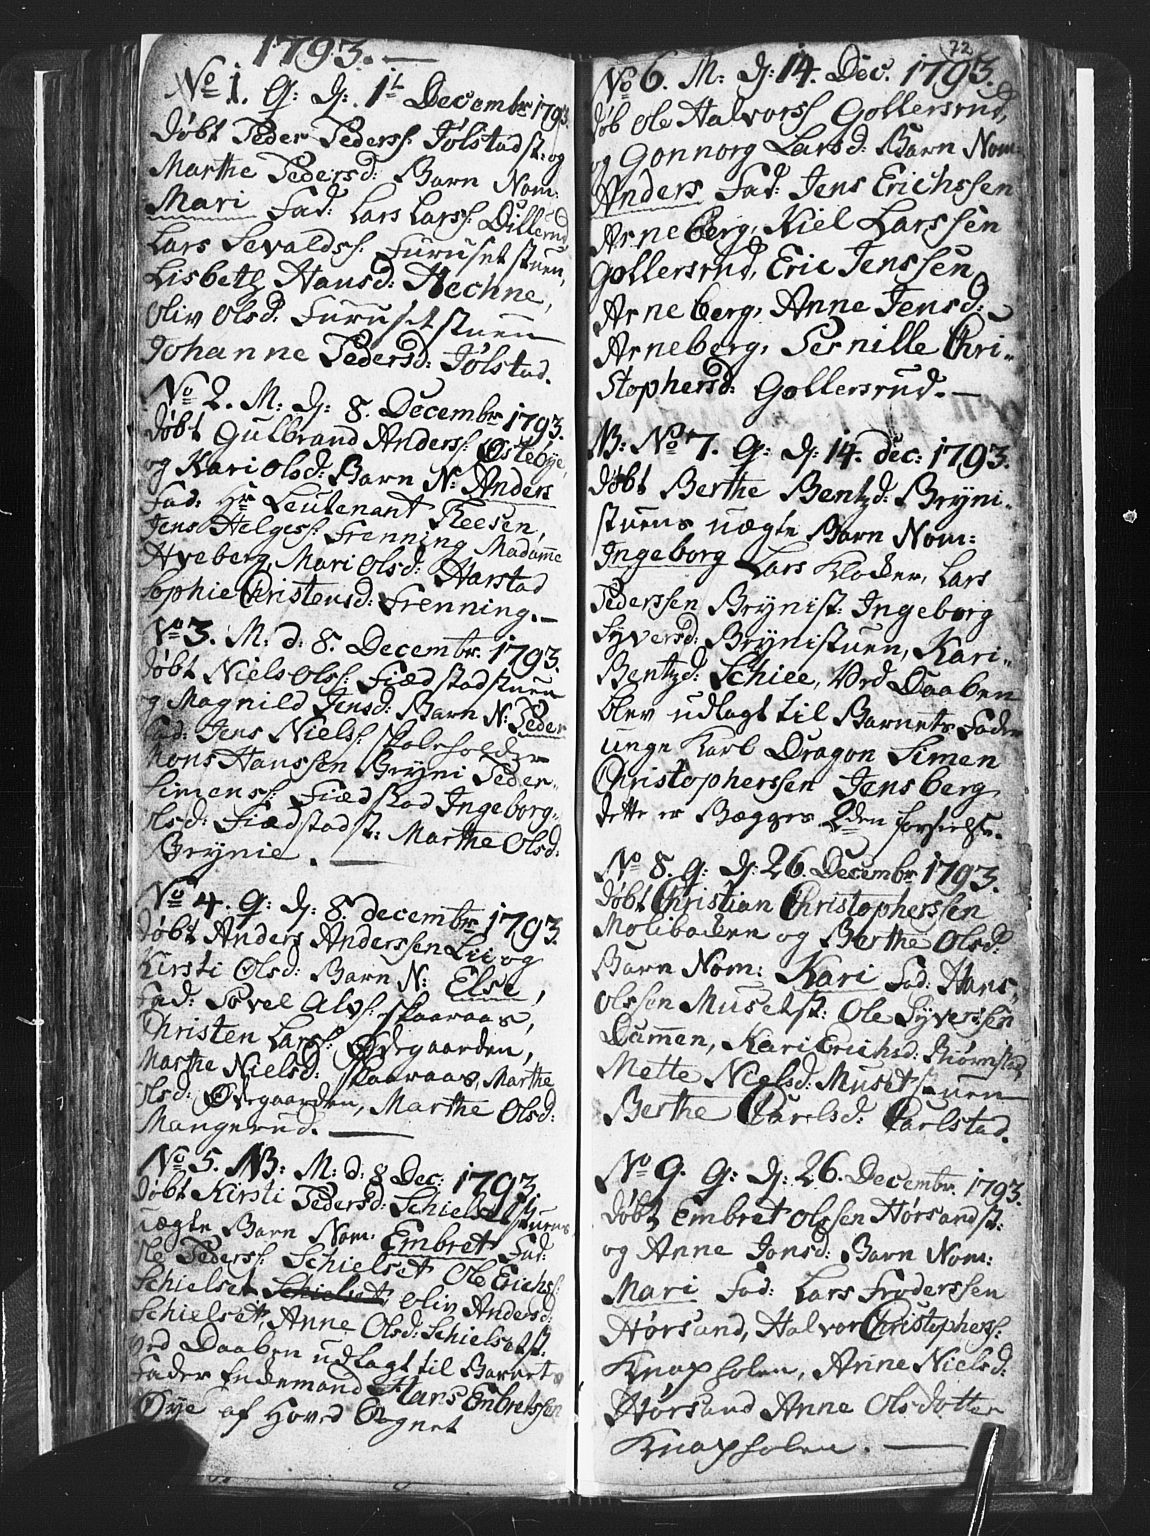 1793. —
No 1. G: D: 1t Decembr 1793.
Døbt Peder Pederss: Jølstadst: og
Marthe Pedersd: Barn Nom:
Mari Fad: Lars Larss: Dillerud,
Lars Sevaldss: Furusetstuen,
Lisbeth Hansd: Hechne,
Oliv Olsd: Furusetstuen
Johanne Pedersd: Jølstad.
No 2. M: D: 8. Decembr 1793.
Døbt Gulbrand Anderss: Østebye,
og Kari Olsd: Barn N: Anders
Fad: Hr Leutenant Reesen,
Jens Helgess: Frenning Madame
Hveberg, Mari Olsd: Harstad
Sophie Christensd: Frenning. —
No 3. M: d: 8. Decembr. 1793.
døbt Niels Olss: Fiædstadstuen
og Magnild Jensd: Barn N: Peder
Fad: Jens Nielss: Skoleholder
Mons Hanssen Bryni Peder
Simenss: Fiædstad Ingeborg
Olsd: Fiædstadst: Marthe Olsd:
Brynie. —
No 4. G: D: 8. decembr 1793.
Døbt Anders Anderssen Lie og
Kirsti Olsd: Barn N: Else,
Fad: Povel Alfs: Skaaraas,
Christen Larss: Ødegaarden,
Marthe Nielsd: Skaaraas, Marthe
Olsd: Ødegaarden, Marthe Olsd:
Mangerud. —
No 5. NB: M: d: 8 Dec: 1793.
døbt Kirsti Pedersd: Schielsetstuens
uægte Barn Nom: Embret Fad:
Ole Pederss: Schielset Ole Erichss:
Schielset Schielset, Oliv Andersd:
Schielset, Anne Olsd: Schielsetst:
ved Daaben udlagt til Barnets
Fader Enkemand Hans Embretssen
Øye af Hoved Sognet
72
No 6. M: D: 14. Dec. 1793.
døb Ole Halvorss Gollersrud,
og Gonnorg Larsd: Barn Nom:
Anders Fad: Jens Erichssen
Arneberg, Kiel Larssen
Gollersrud, Eric Jenssen
Arneberg, Anne Jensd:
Arneberg, Pernille Chri-
stophersd: Gollersrud. —
NB: No 7. G: D: 14. dec: 1793.
døbt Berthe Bentzd: Bryni-
stuens uægte Barn Nom:
Ingeborg Lars Klocker, Lars
Pederssen Brynist: Ingeborg
Syversd: Brynistuen, Kari
Bentzd: Schiee, Ved Daaben
blev udlagt til Barnets Fader
unge Karl Dragon Simen
Christopherssen Jensberg
dette er Bægges 2den forseelse.
No 8. G: D: 26. Decembr 1793.
døbt Christian Christopherssen
Molibacken og Berthe Olsd:
Barn Nom: Kari Fad: Hans
Olssen Musetst: Ole Syverssen
Dammen, Kari Erichsd: Biørnstad
Mette Nielsd: Musetstuen
Berthe Carlsd: Carlstad.
No 9. G: D: 26. Decembr. 1793.
døbt Embret Olssen Hørsandst:
og Anne Jonsd: Barn Nom:
Mari Fad: Lars Froderssen
Hørsand, Halvor Christopherss:
Knapholen, Anne Nielsd:
Hørsand Anne Olsdotter
Knapholen. —